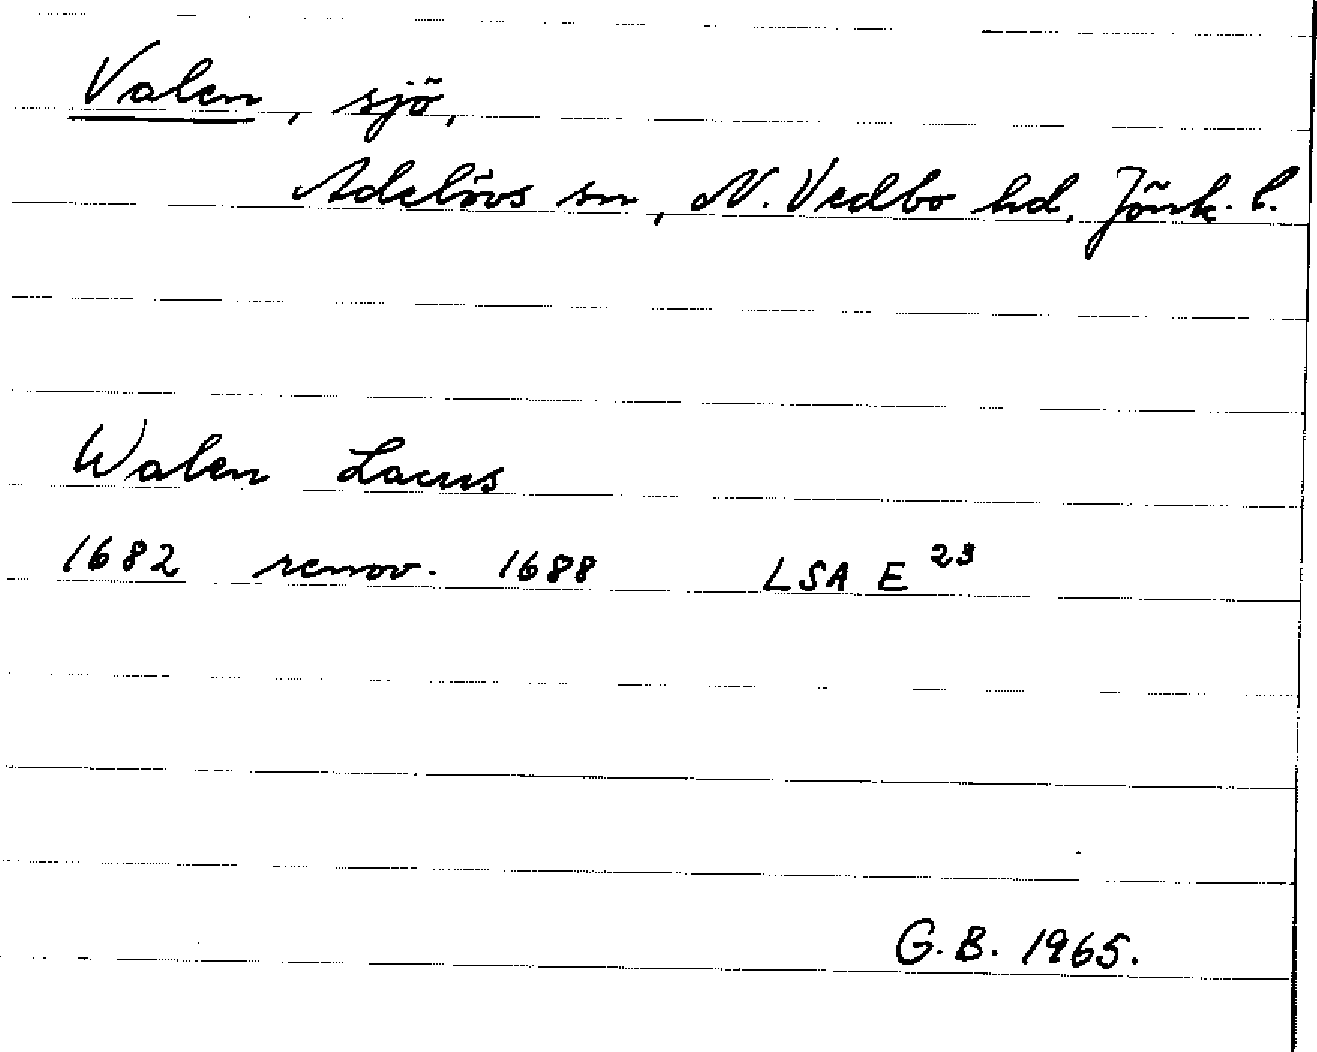 Valen, sjö,
Adelövs sn, N. Vedbo hd, Jönk. l.
Walen Lacus
1682 renov. 1688 LSA E²³
G.B. 1965.